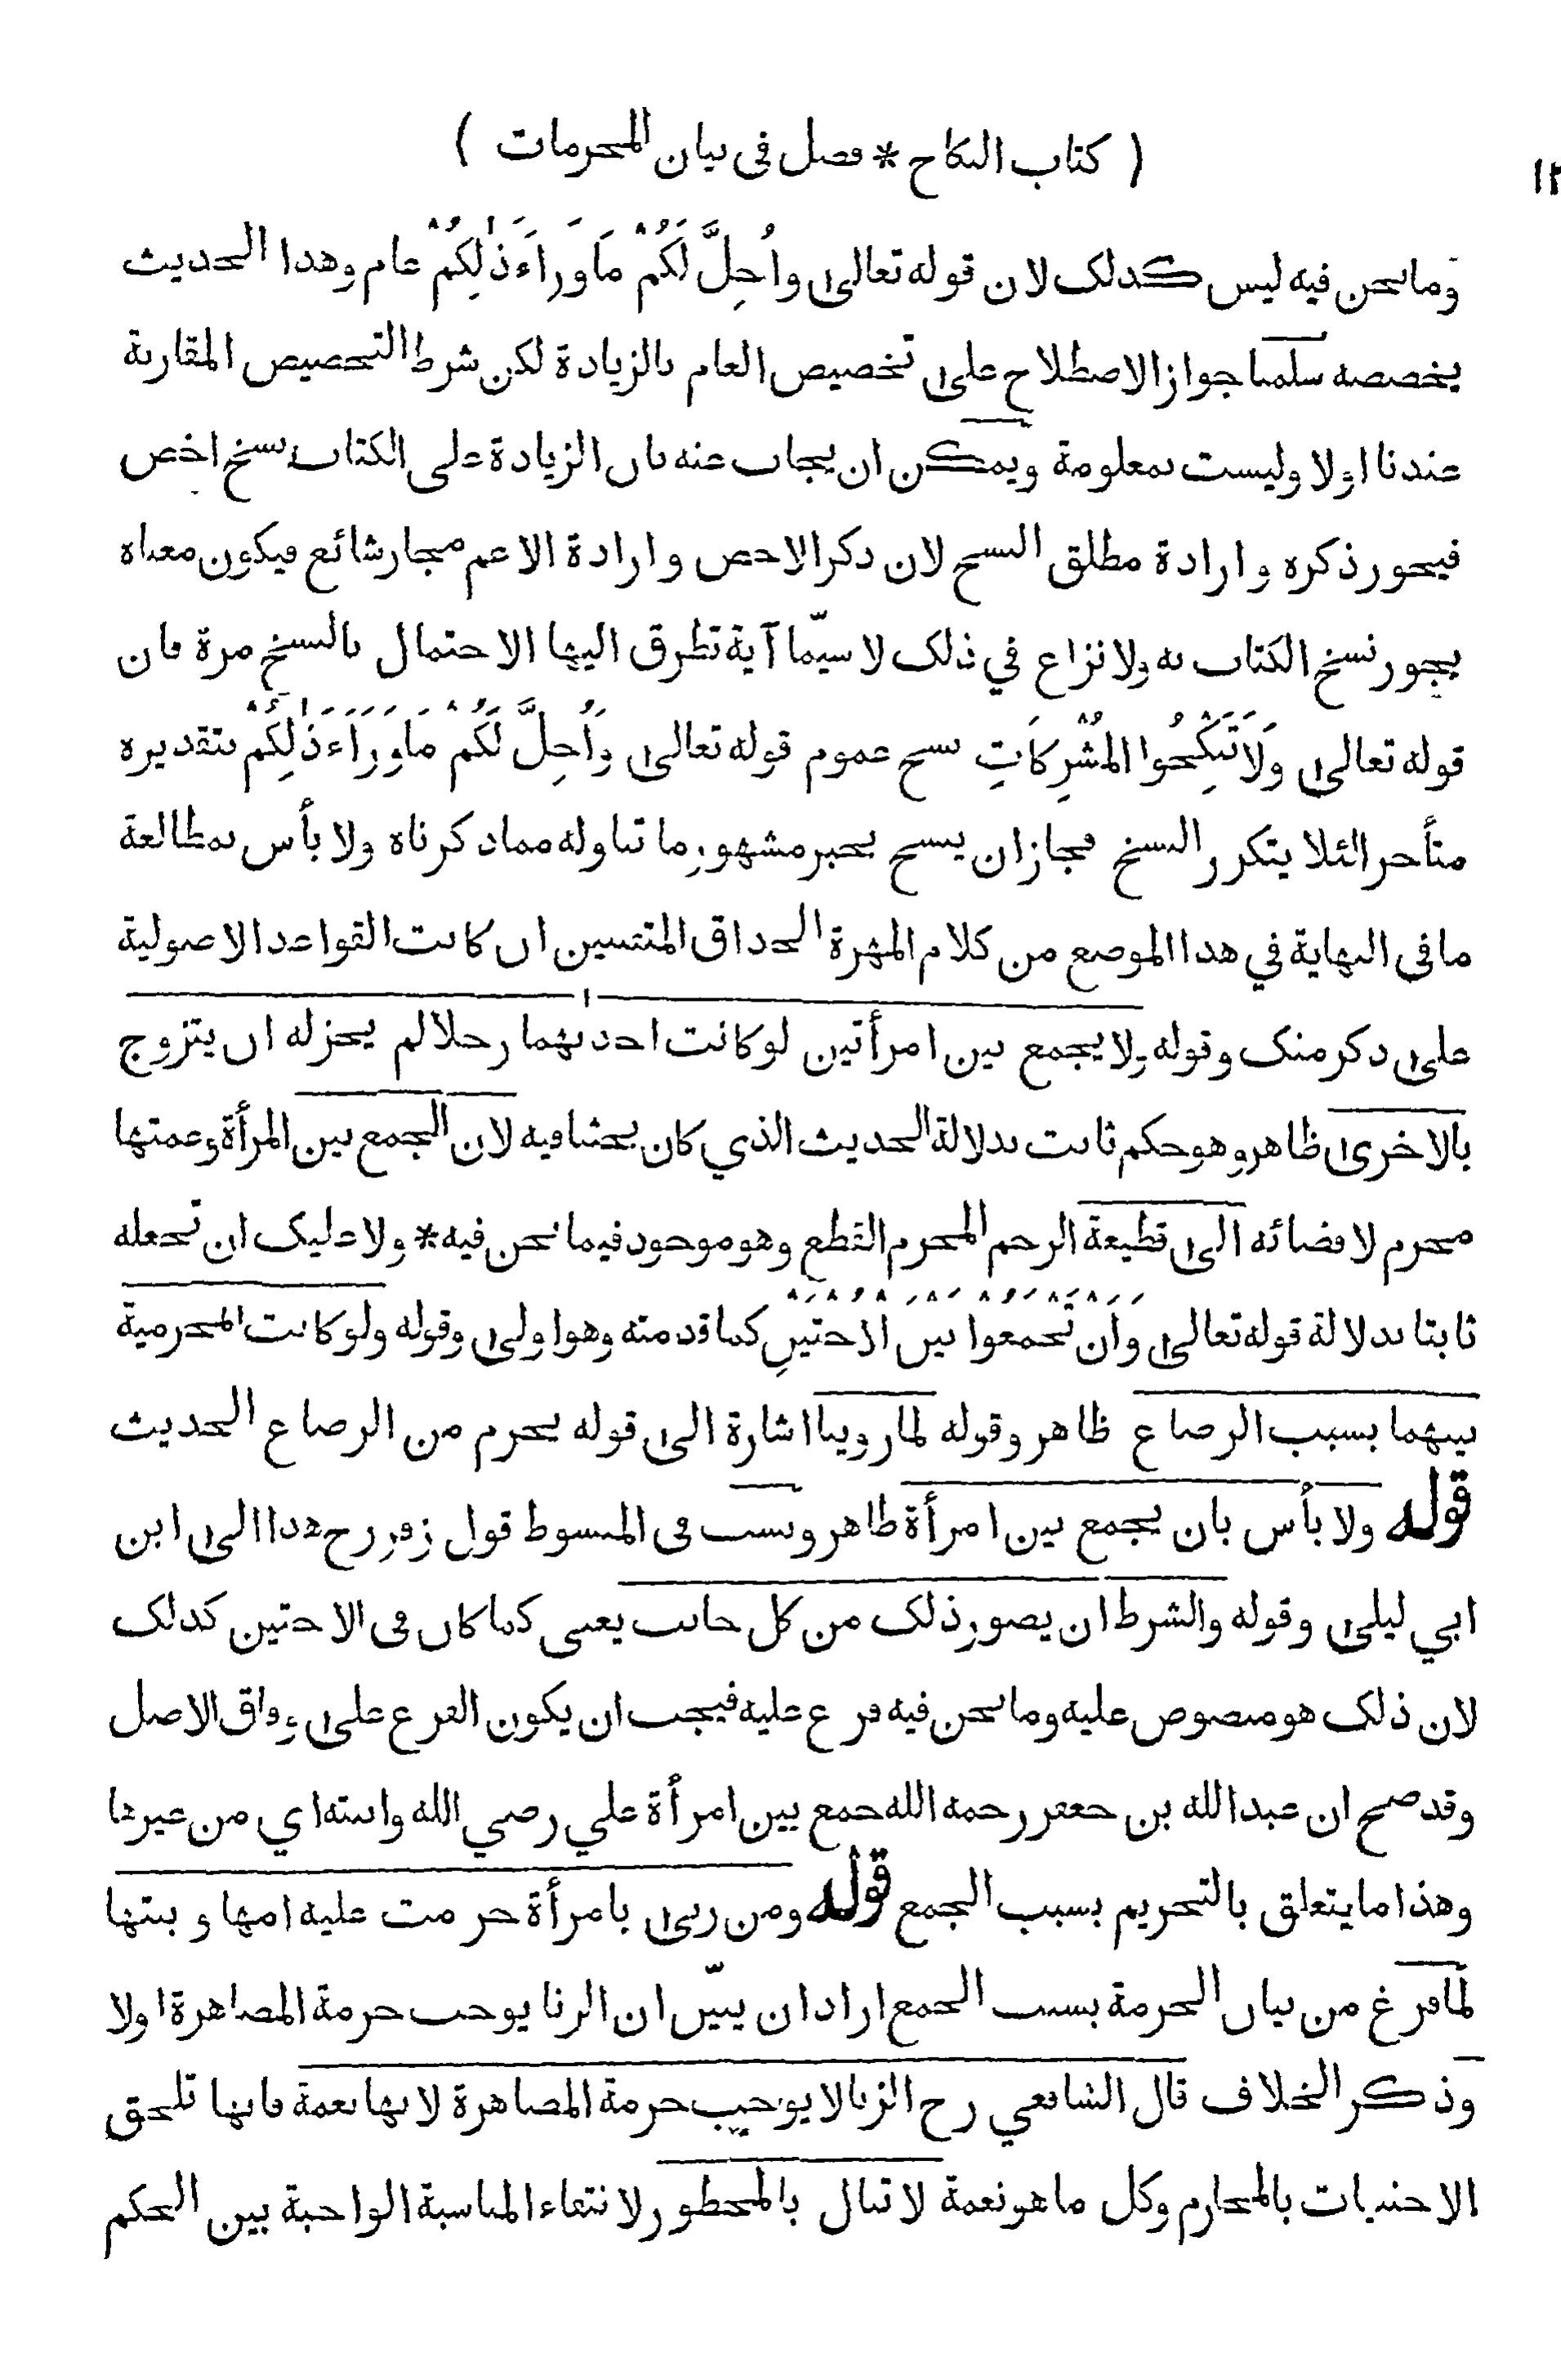 ( كتاب النكاح * فصل في بيان المحرمات )
١٢
وما نحن فيه ليس كذلك لان قوله تعالى وَاُحِلَّ لَكُمْ مَا وَرَاءَ ذٰلِكُمْ عام وهذا الحديث
يخصصه سلمنا جواز الاصطلاح على تخصيص العام بالزيادة لكن شرط التخصيص المقارنة
عندنا اولا وليست بمعلومة ويمكن ان يجاب عنه بان الزيادة على الكتاب نسخ اخص
فيجوز ذكره وارادة مطلق النسخ لان ذكر الاخص وارادة الاعم مجاز شائع فيكون معناه
يجوز نسخ الكتاب به ولا نزاع في ذلك لا سيّما آية تطرق اليها الاحتمال بالنسخ مرة فان
قوله تعالى وَلَا تَنْكِحُوا الْمُشْرِكَاتِ نسخ عموم قوله تعالى وَاُحِلَّ لَكُمْ مَا وَرَاءَ ذٰلِكُمْ بتقديره
متأخرا لئلا يتكرر النسخ فجاز ان ينسخ بخبر مشهور ما تناوله مما ذكرناه ولا بأس بمطالعة
ما في النهاية في هذا الموضع من كلام المهرة الحذاق المتقنين ان كانت القواعد الاصولية
على ذكر منك وقوله ولا يجمع بين امرأتين لو كانت احدىهما رجلا لم يجز له ان يتزوج
بالاخرى ظاهر وهو حكم ثابت بدلالة الحديث الذي كان بحثنا فيه لان الجمع بين المرأة وعمتها
محرم لافضائه الى قطيعة الرحم المحرم القطع وهو موجود فيما نحن فيه * ولا عليك ان تجعله
ثابتا بدلالة قوله تعالى وَاَنْ تَجْمَعُوا بَيْنَ الْاُخْتَيْنِ كما قدمته وهو اولى وقوله ولو كانت المحرمية
بينهما بسبب الرضاع ظاهر وقوله لما روينا اشارة الى قوله يحرم من الرضاع الحديث
قوله ولا بأس بان يجمع بين امرأة ظاهر ونسب في المبسوط قول زفر رح هذا الى ابن
ابي ليلى وقوله والشرط ان يصور ذلك من كل جانب يعني كما كان في الاختين كذلك
لان ذلك هو منصوص عليه وما نحن فيه فرع عليه فيجب ان يكون الفرع على وفاق الاصل
وقد صح ان عبد الله بن جعفر رحمه الله جمع بين امرأة علي رضي الله وابنته اي من غيرها
وهذا ما يتعلق بالتحريم بسبب الجمع قوله ومن زنى بامرأة حرمت عليه امها وبنتها
لما فرغ من بيان الحرمة بسبب الجمع اراد ان يبيّن ان الزنا يوجب حرمة المصاهرة اولا
وذكر الخلاف قال الشافعي رح الزنا لا يوجب حرمة المصاهرة لانها نعمة فانها تلحق
الاجنبيات بالمحارم وكل ما هو نعمة لا تنال بالمحظور لانتفاء المناسبة الواجبة بين الحكم